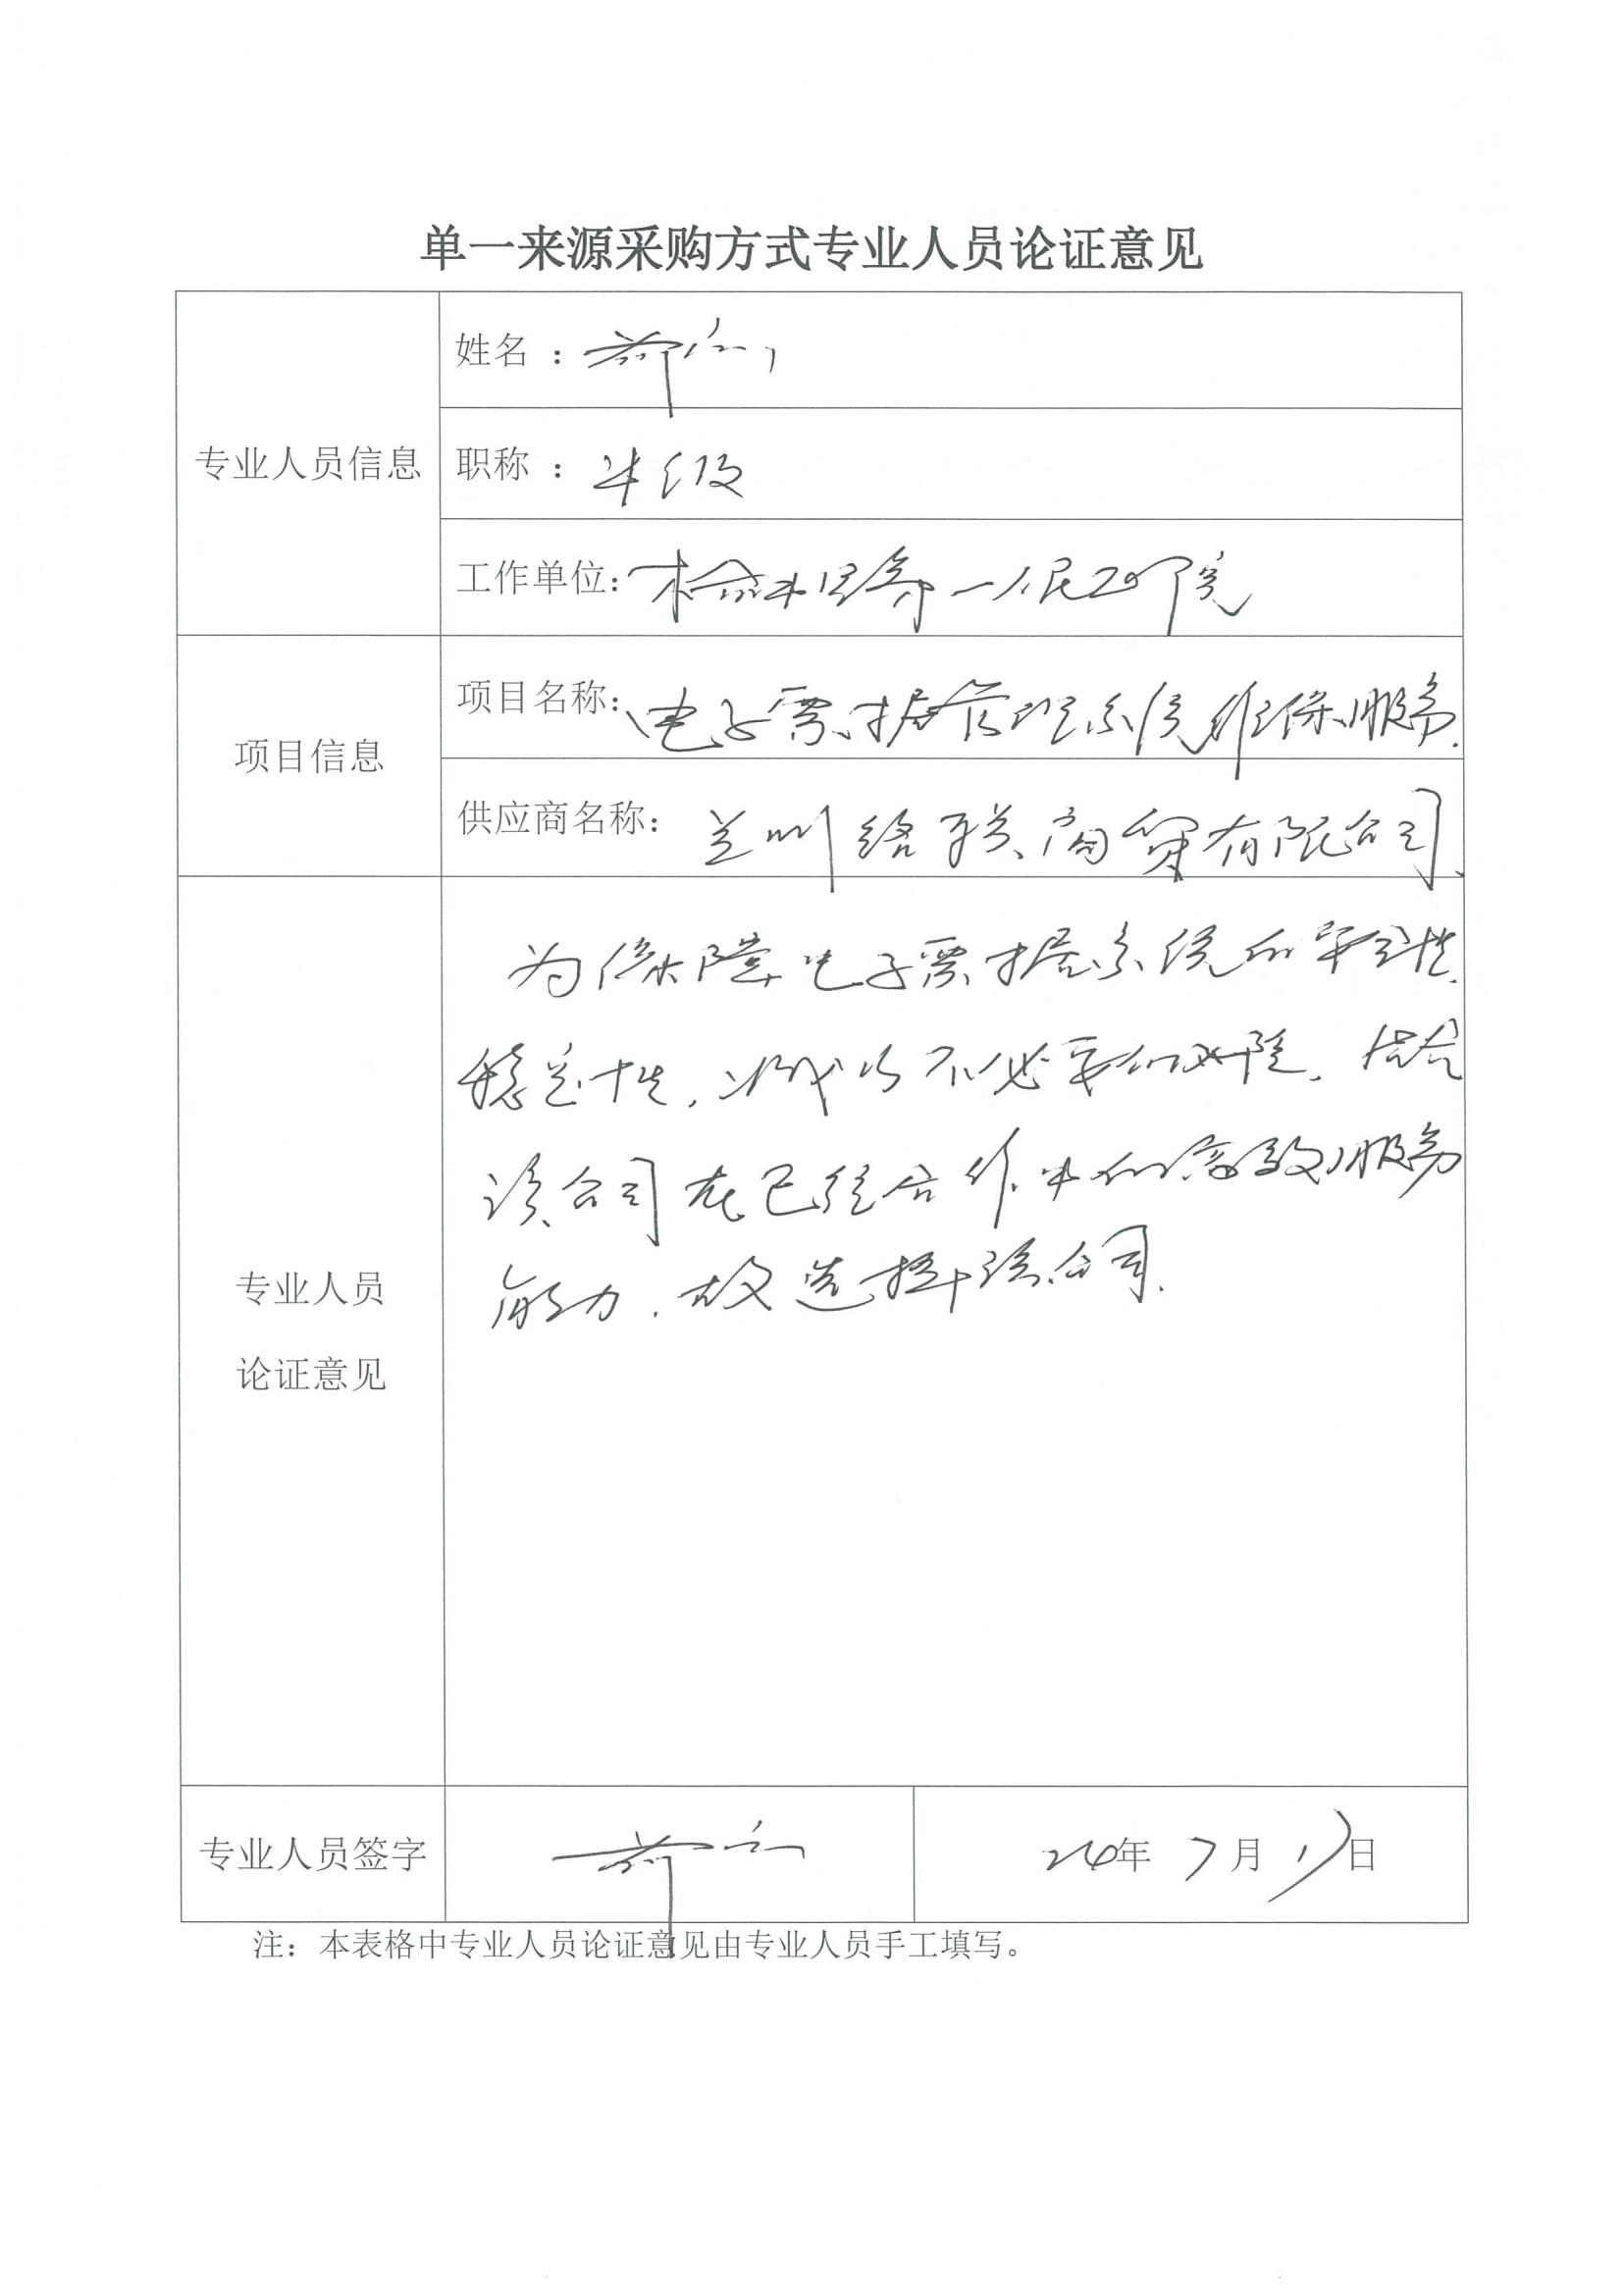 单一来源采购方式专业人员论证意见
专业人员信息
姓名：
职称：中级
工作单位：榆中县第一人民医院
项目信息
项目名称：电子票据管理系统维保服务.
供应商名称：兰州络联商贸有限公司.
专业人员
论证意见
为保障电子票据系统的安全性.
稳定性，减少不必要的风险，结合
该公司在已经合作中的高效服务
能力，故选择该公司.
专业人员签字
24年 7月 17日
注：本表格中专业人员论证意见由专业人员手工填写。